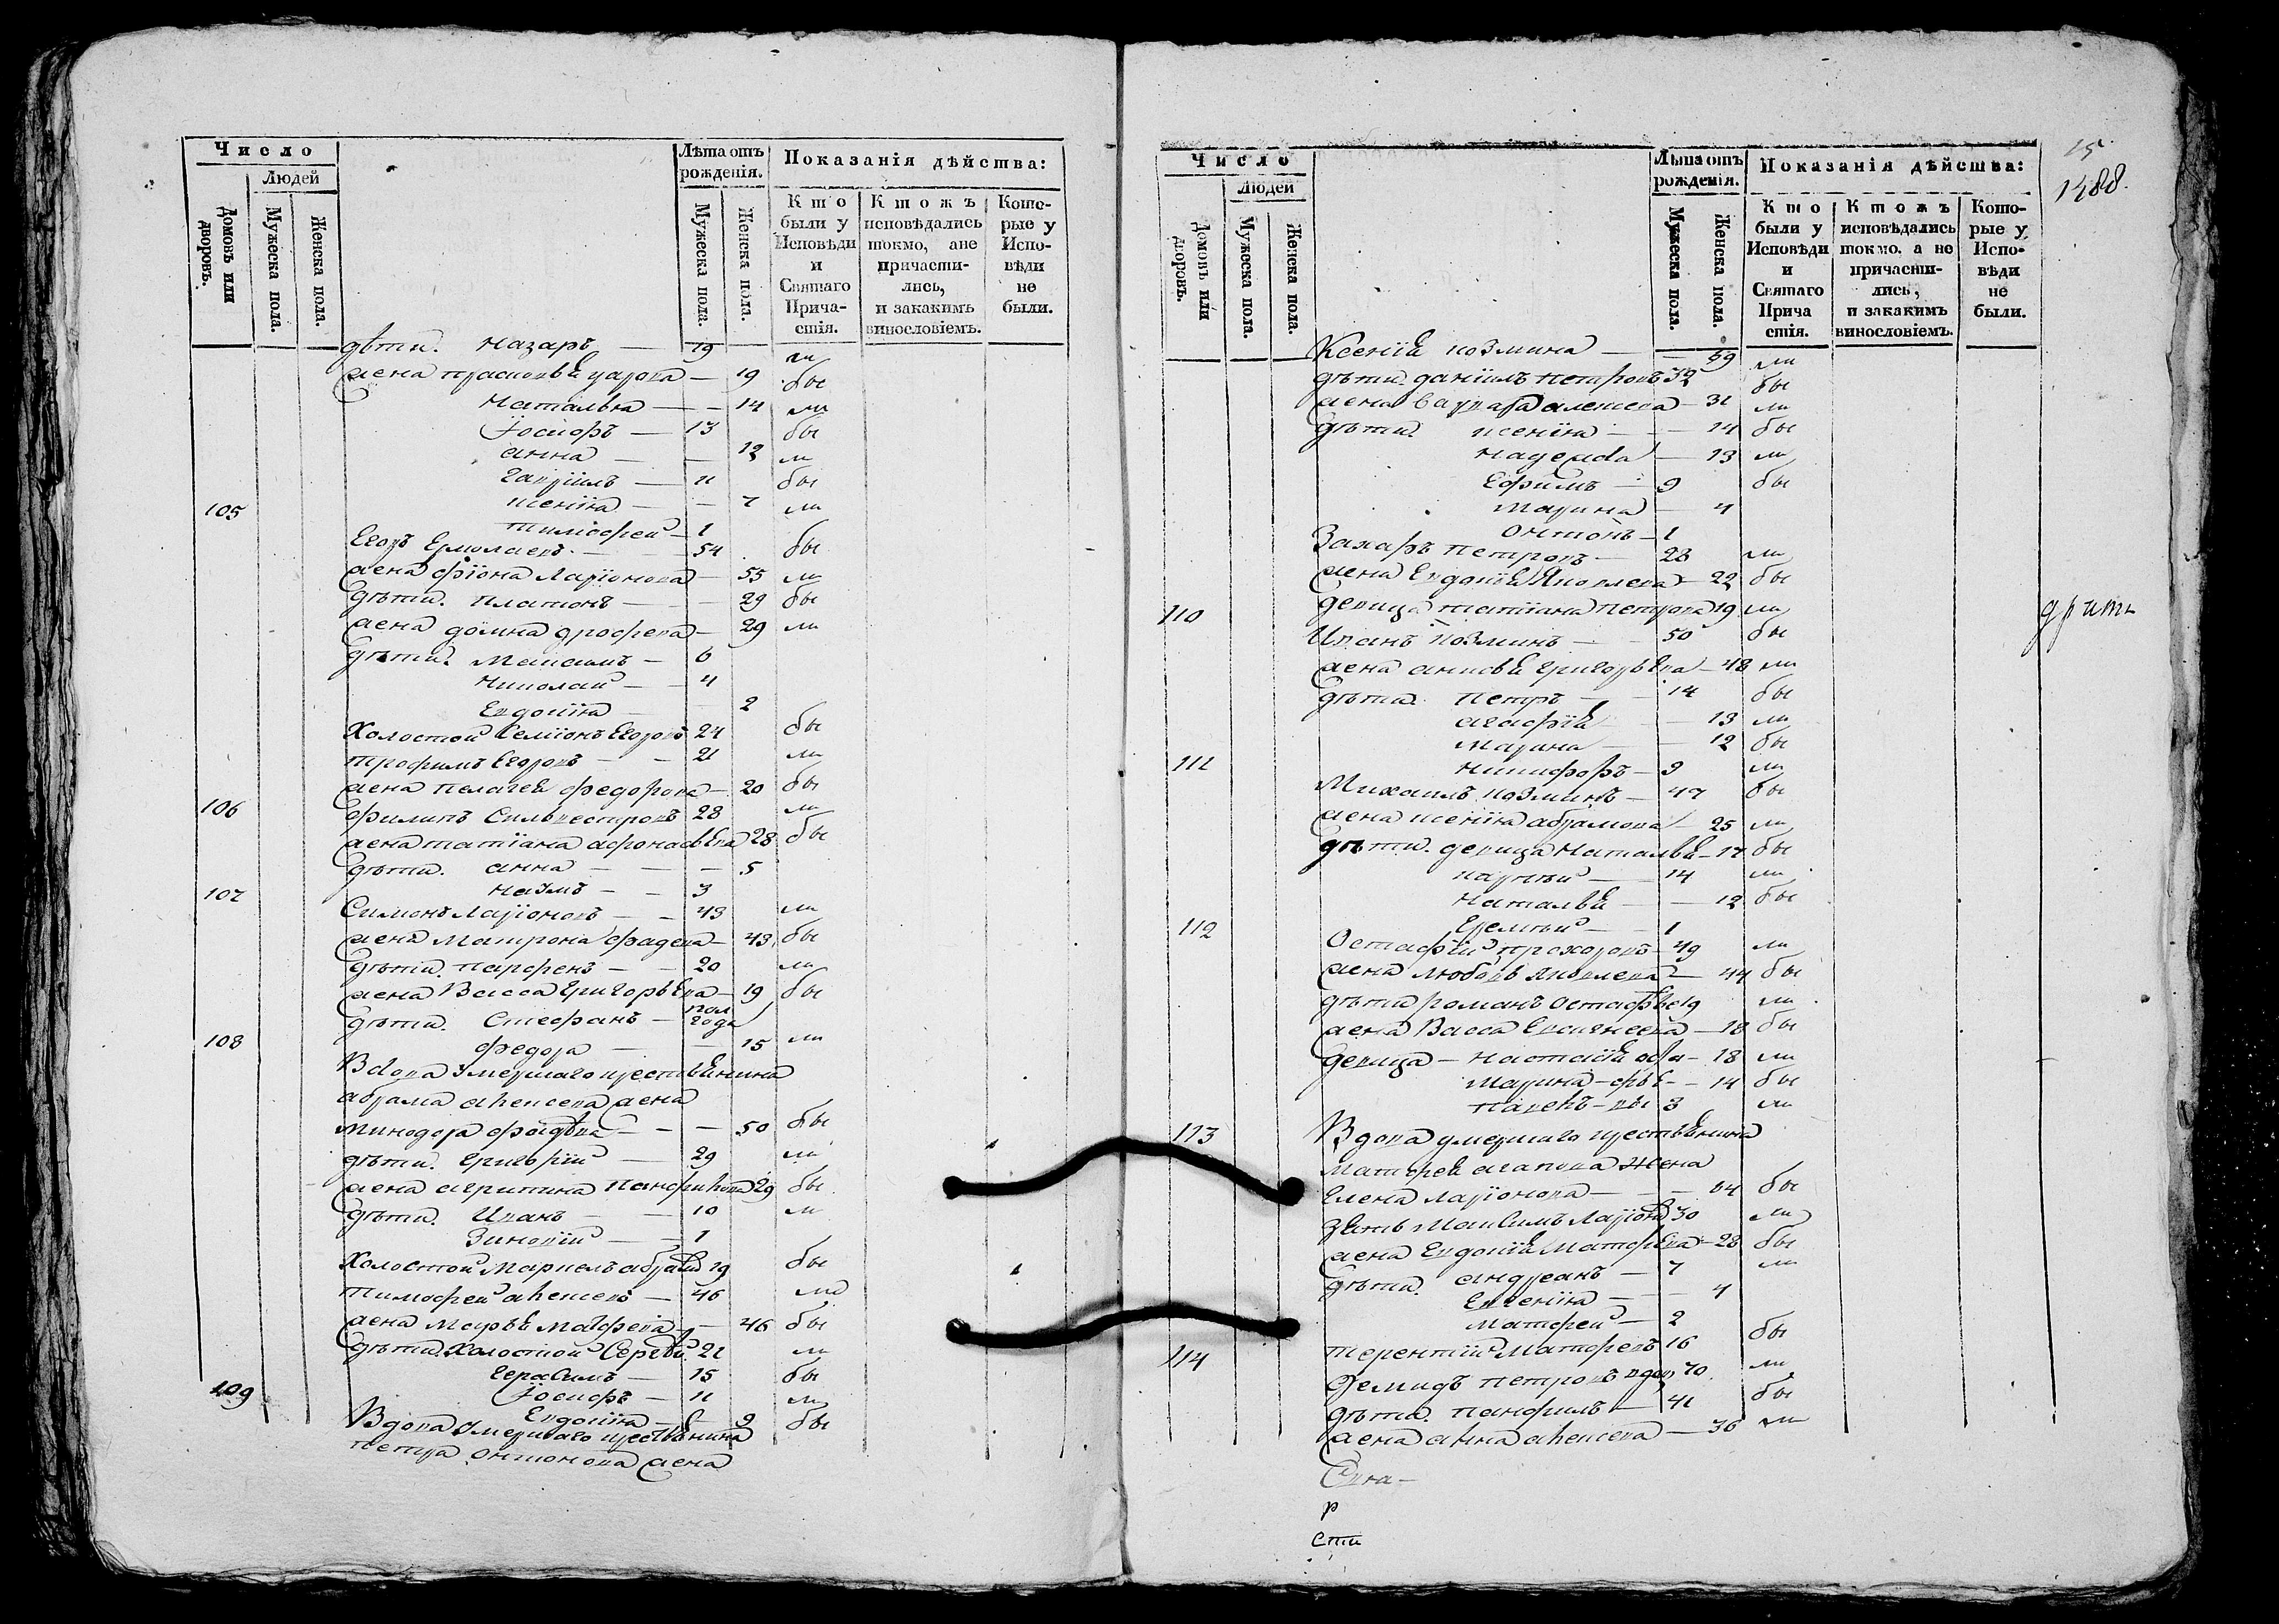 Число
Людей
Домовъ или дворовъ.
Мужеска пола.
Женска пола.
Лѣта отъ рожденія.
Мужеска пола.
Женска пола.
Показанія дѣйства:
Кто были у Исповѣди и Святаго Причастія.
Ктожъ исповѣдались токмо, а не причастились, и закакимъ винословіемъ.
Которые у Исповѣди не были.
дѣти. Назаръ — 19 ли
жена 19 бы
Наталья — 14 ли
Іосифъ — 13 бы
анна — 12 ли
гавріилъ — 11 бы
ксенія — 7 ли
105
тимофей — 1
Егоръ Ермолаевъ — 54 бы
жена Ларіонова — 55 ли
дѣти. платонъ — 29 бы
жена домна — 29 ли
дѣти. Максимъ — 6
Николай — 4
Евдокія — 2
Холостой Семіонъ Егоровъ 24 бы
трофимъ Егоровъ — 21 ли
жена пелагея федорова — 20 бы
106 филипъ Сильвестровъ 28 ли
жена татіана афонасьева 28 бы
дѣти. анна — 5
наумъ — 3
107
Симонъ Ларіоновъ — 43 ли
жена Матрона фадева — 43 бы
дѣти. парфенъ — 20 ли
жена Васса григорьева — 19 бы
дѣти. Стефанъ — пол года
108 федора — 15 ли
Вдова умершаго крестьянина
абрама алексева жена
минодора — 50 бы
дѣти. григорій — 29 ли
жена агрипина панфилова 29 бы
дѣти. Иванъ — 10 ли
Зиновій — 1
Холостой Маркелъ 19 бы
тимофей алексевъ — 46 ли
жена марья — 46 бы
дѣти. Холостой Сергѣй 21 ли
герасимъ — 15 бы
109 Іосифъ — 11 ли
Евдокія — 9 бы
Вдова умершаго крестьянина
петра онтонова жена
Число
Людей
Домовъ или дворовъ.
Мужеска пола.
Женска пола.
Лѣта отъ рожденія.
Мужеска пола.
Женска пола.
Показанія дѣйства:
Кто были у Исповѣди и Святаго Причастія.
Ктожъ исповѣдались токмо, а не причастились, и закакимъ винословіемъ.
Которые у Исповѣди не были.
15
1488.
Ксенія козмина — 59 ли
дѣти. даніилъ петровъ 32 бы
жена варвара алексева — 31 ли
дѣти. ксенія — 14 бы
надежда — 13 ли
Ефимъ — 9 бы
марина — 4
онтонъ — 1
Захаръ петровъ — 23 ли
жена Евдокія Яковлева — 22 бы
110 девица татіана петрова 19 ли
Иванъ козминъ — 50 бы
жена григорьева — 48 ли
дѣти. петръ — 14 бы
агафія — 13 ли
марина — 12 бы
111 никифоръ — 9 ли
Михаилъ козминъ — 47 бы
жена ксенія абрамова — 25 ли
дѣти. девица Наталья — 17 бы
14 ли
Наталья — 12 бы
112 Еремѣй — 1
Остафій прохоровъ — 49 ли
жена любовь яковлева — 44 бы
дѣти романъ 19 ли
жена Васса — 18 бы
девица — настасія — 18 ли
марина — 14 бы
3 ли
113 Вдова умершаго крестьянина
матфея агапова жена
Елена ларіонова — 64 бы
зять Максимъ 30 ли
жена Евдокія матфева — 28 бы
дѣти. андреанъ — 7 ли
Евгенія — 4
матфей — 2
терентій матфевъ 16 бы
114 Демидъ петровъ вдов 70 ли
дѣти. панфилъ — 41 бы
жена анна алексева — 36 ли
р
сти